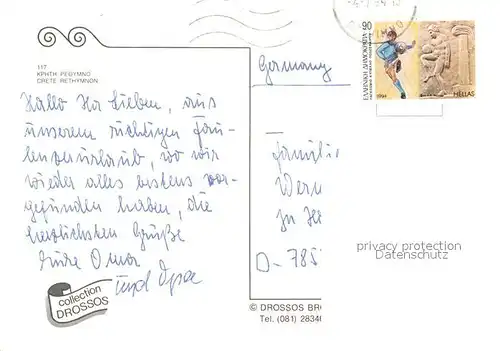 117
ΚΡΗΤΗ ΡΕΘΥΜΝΟ
CRETE RETHYMNON
Hallo Ihr Lieben, aus
unserem richtigen Fau-
lenzerurlaub, wo wir
wieder alles bestens vor-
gefunden haben, die
herzlichsten Grüße
Eure Oma
und Opa
collection
DROSSOS
© DROSSOS BRO
Tel. (081) 28346
Germany
90
ΕΛΛΗΝΙΚΗ ΔΗΜΟΚΡΑΤΙΑ
1994
HELLAS
Famili
Wern
zu He
D-785
privacy protection
Datenschutz